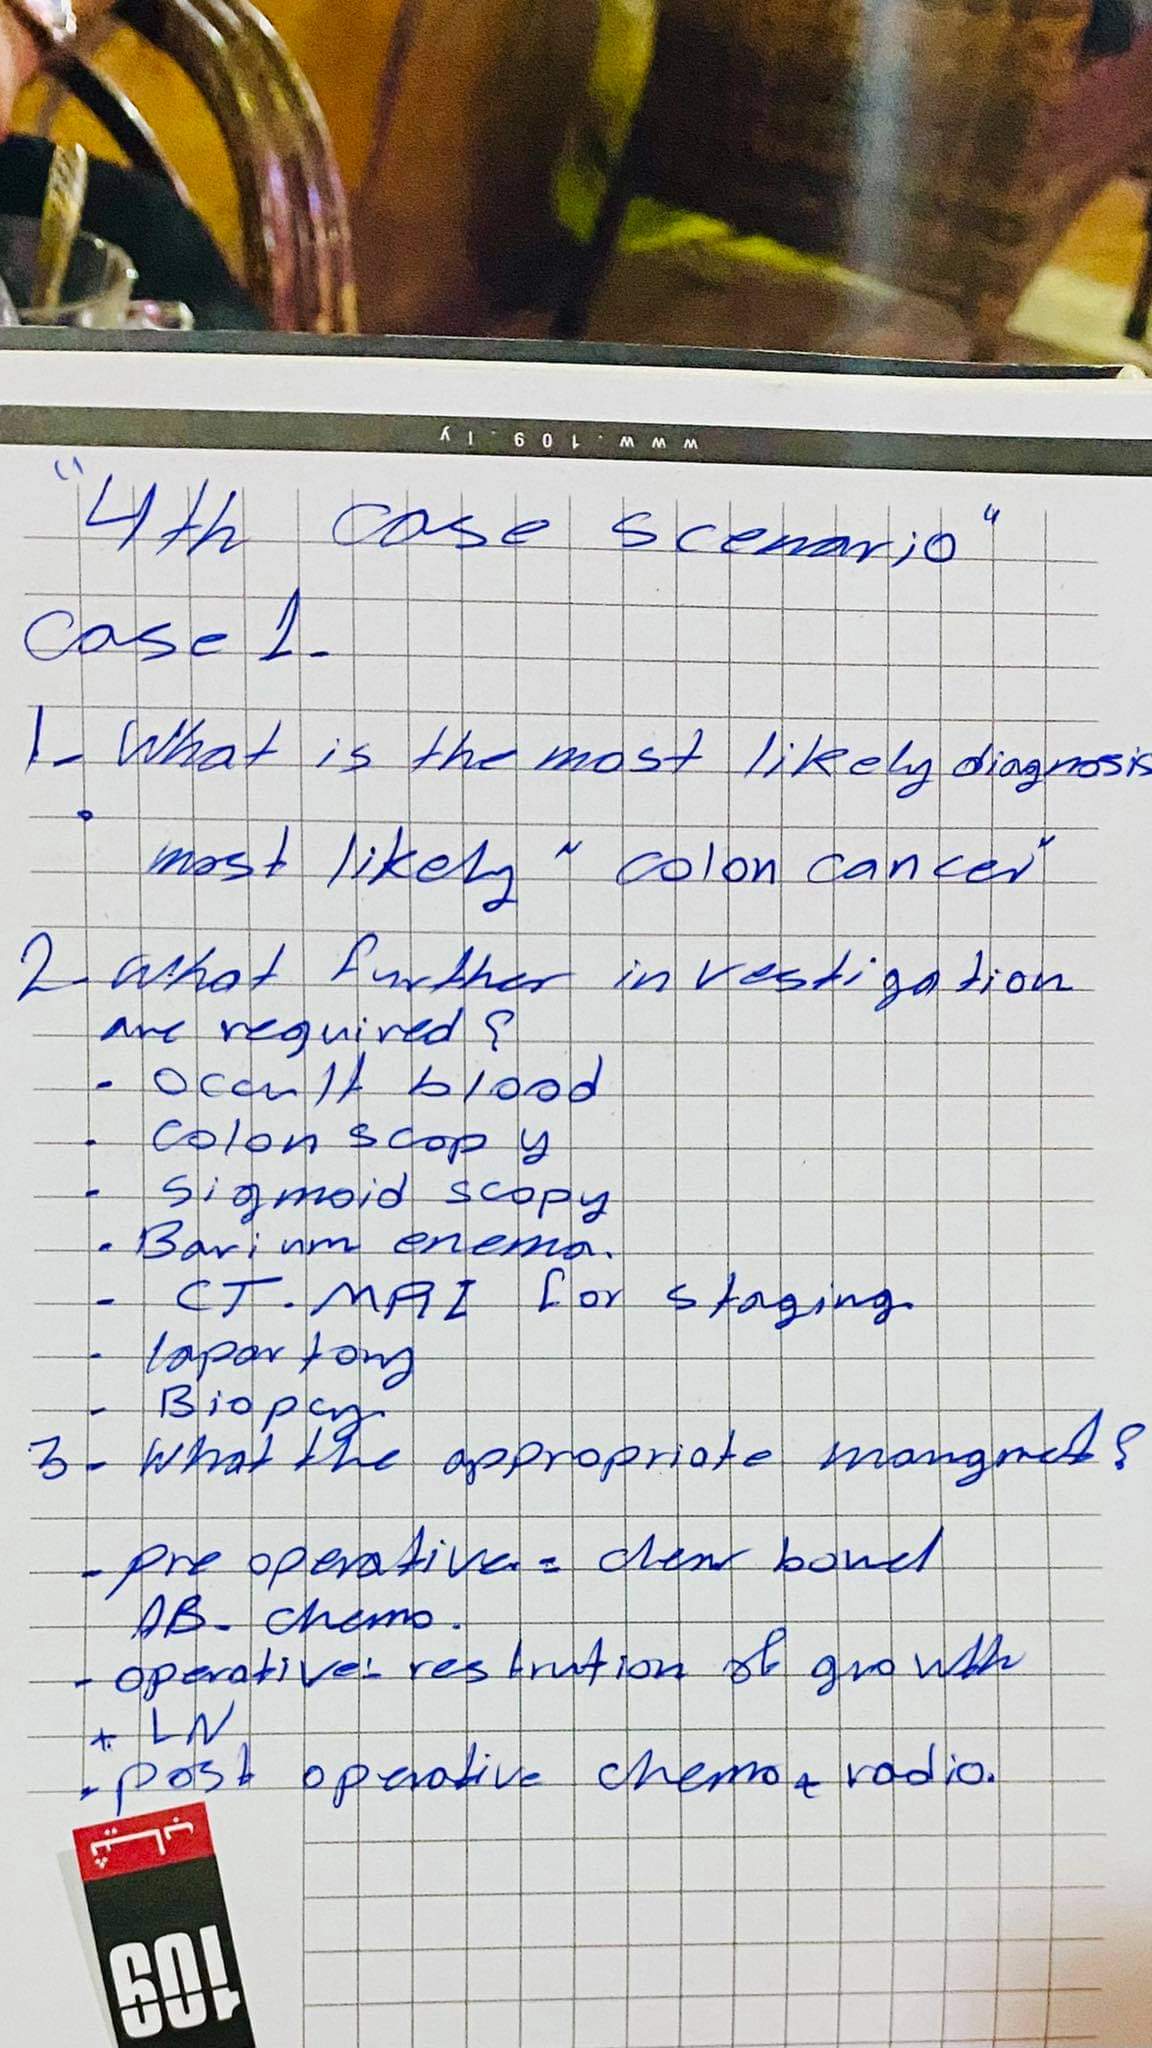 www.109.ly
"4th case scenario"
case 1-
1- What is the most likely diagnosis
most likely "colon cancer"
2- What further investigation
are required?
- Occult blood
- colon scopy
- sigmoid scopy
- Barium enema.
- CT. MRI for staging.
- lapartomy
- Biopcy
3- What the appropriate mangmet?
- pre operative: clear bowel
AB- chemo.
- operative: restrution of growth
+ LN
- post operative chemo + radio.
109